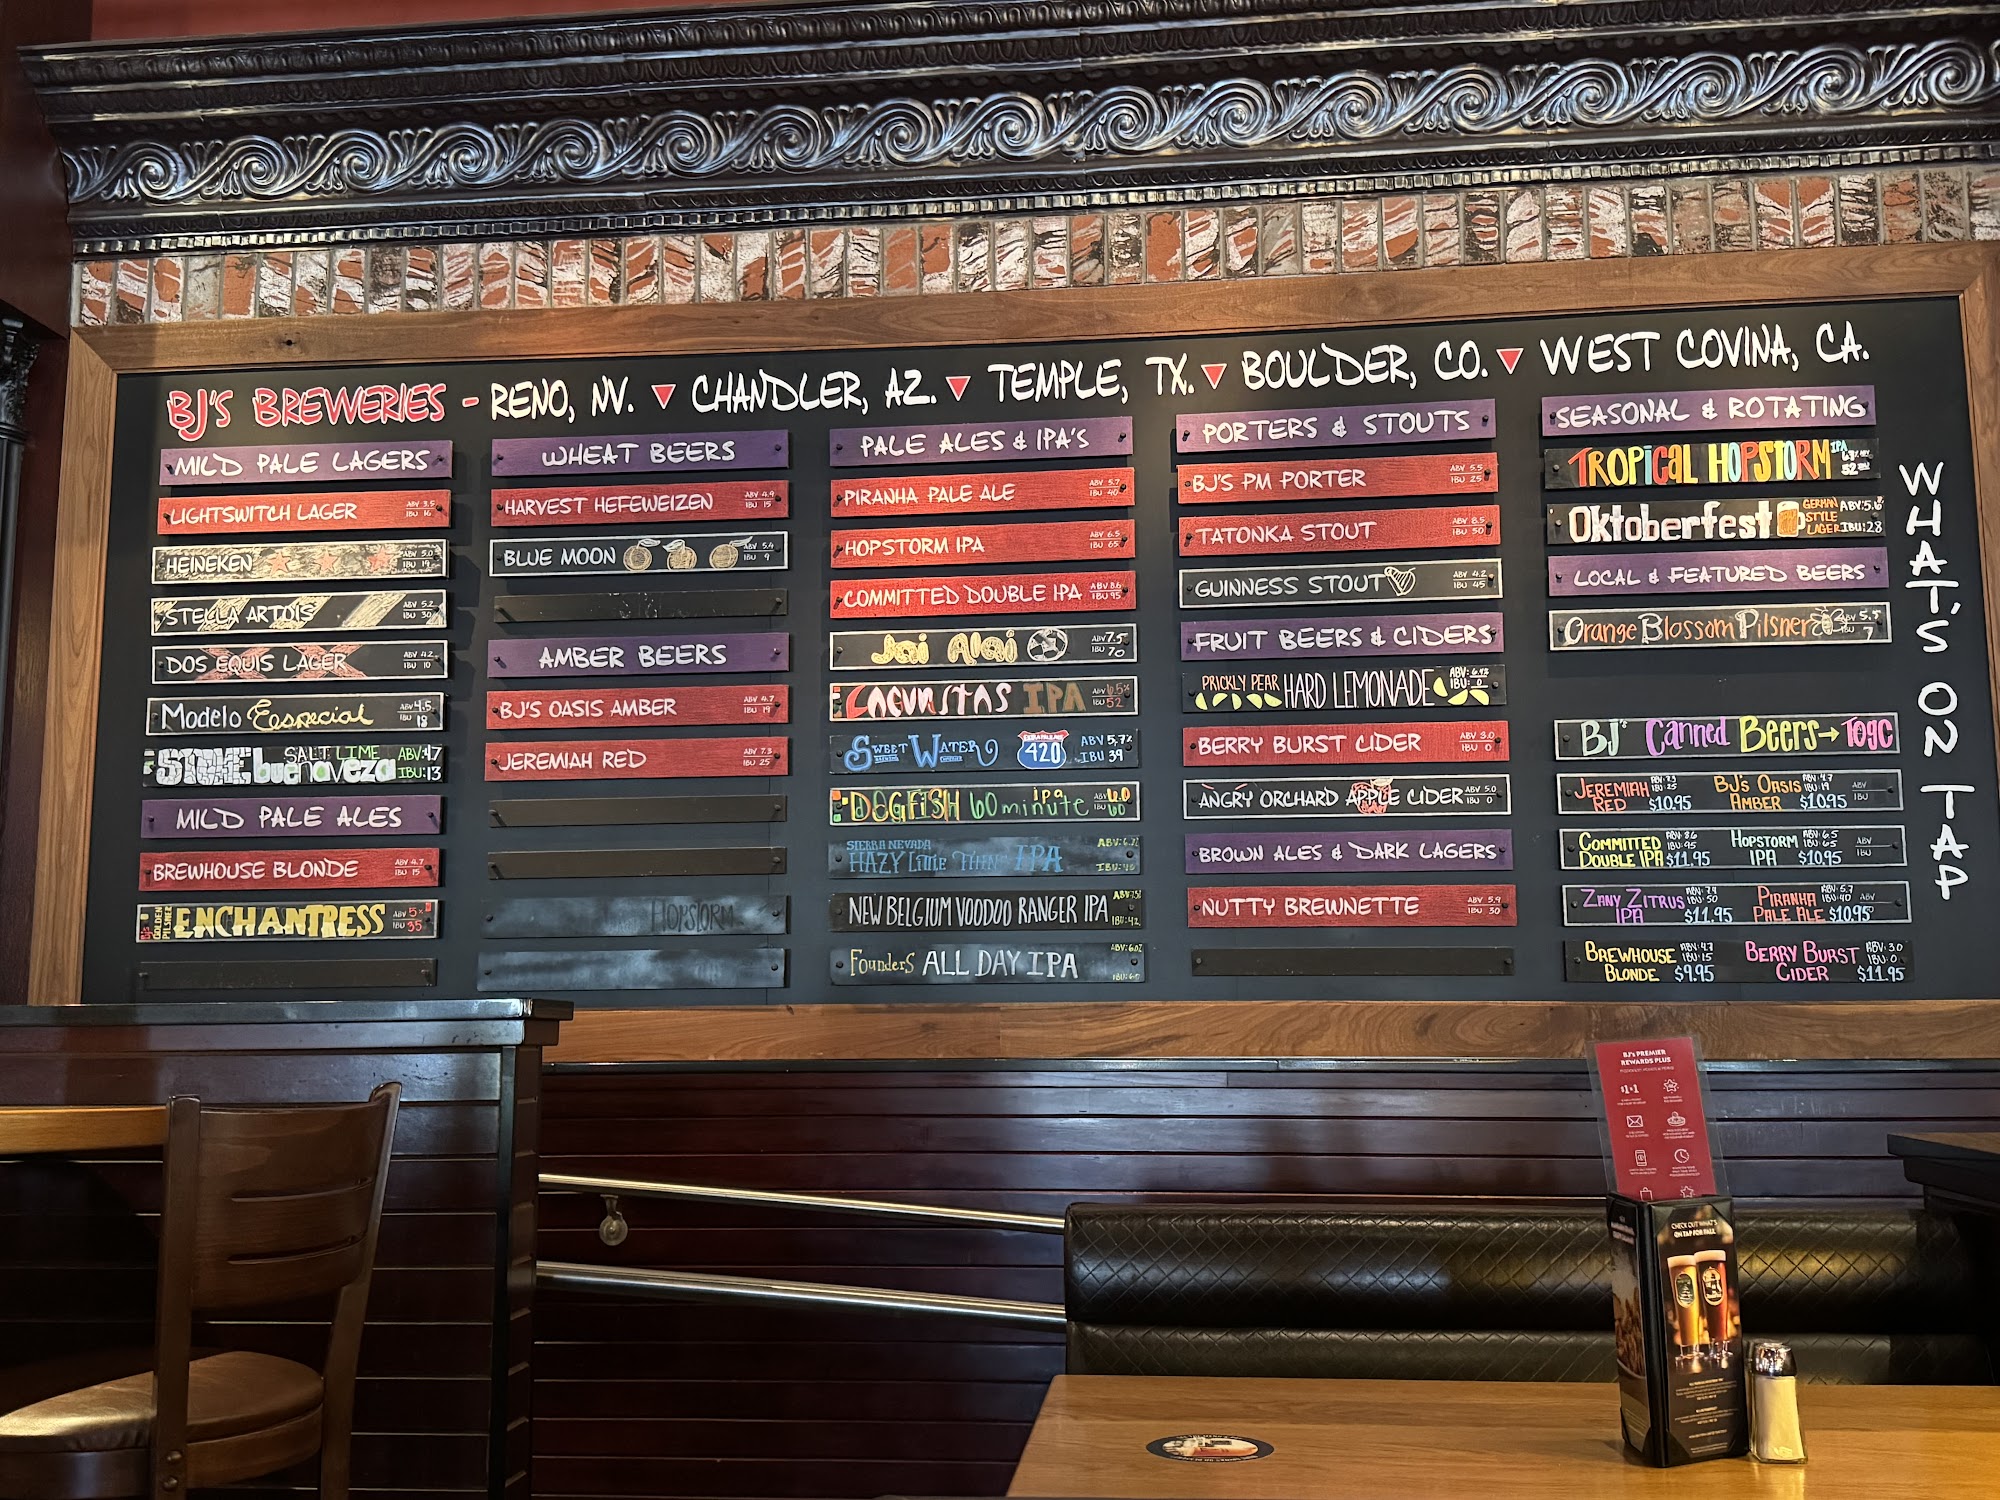 BJ'S BREWERIES - RENO, NV. ▼ CHANDLER, AZ. ▼ TEMPLE, TX. ▼ BOULDER, CO. ▼ WEST COVINA, CA.
MILD PALE LAGERS
LIGHTSWITCH LAGER ABV 3.5
IBU 16
HEINEKEN ABV 5.0
IBU 19
STELLA ARTOIS ABV 5.2
IBU 30
DOS EQUIS LAGER ABV 4.2
IBU 10
Modelo Especial ABV 4.5
IBU 18
STONE buenaveza SALT LIME ABV: 4.7
IBU: 13
MILD PALE ALES
BREWHOUSE BLONDE ABV 4.7
IBU 15
BJ's GOLDEN PILSNER ENCHANTRESS ABV 5%
IBU 35
WHEAT BEERS
HARVEST HEFEWEIZEN ABV 4.9
IBU 15
BLUE MOON ABV 5.4
IBU 9
AMBER BEERS
BJ'S OASIS AMBER ABV 4.7
IBU 19
JEREMIAH RED ABV 7.3
IBU 25
HOPSTORM
PALE ALES & IPA'S
PIRANHA PALE ALE ABV 5.7
IBU 40
HOPSTORM IPA ABV 6.5
IBU 65
COMMITTED DOUBLE IPA ABV 8.6
IBU 95
Jai Alai ABV 7.5
IBU 70
LAGUNITAS IPA ABV 6.5%
IBU 52
SWEET WATER BREWING COMPANY 420 ABV 5.7%
IBU 39
DOGFISH 60 minute IPA ABV 6.0
IBU 60
SIERRA NEVADA
HAZY Little Thing IPA
NEW BELGIUM VOODOO RANGER IPA
IBU: 42
Founders ALL DAY IPA
PORTERS & STOUTS
BJ'S PM PORTER ABV 5.5
IBU 25
TATONKA STOUT ABV 8.5
IBU 50
GUINNESS STOUT ABV 4.2
IBU 45
FRUIT BEERS & CIDERS
PRICKLY PEAR HARD LEMONADE
IBU: 0
BERRY BURST CIDER ABV 3.0
IBU 0
ANGRY ORCHARD APPLE CIDER ABV 5.0
IBU 0
BROWN ALES & DARK LAGERS
NUTTY BREWNETTE ABV 5.9
IBU 30
SEASONAL & ROTATING
TROPICAL HOPSTORM IPA
52
Oktoberfest GERMAN STYLE LAGER ABV: 5.6%
IBU: 28
LOCAL & FEATURED BEERS
Orange Blossom Pilsner ABV 5.5
IBU 7
BJ's Canned Beers → Togo
JEREMIAH RED ABV: 7.3 IBU: 25 $10.95
BJ'S OASIS AMBER ABV: 4.7 IBU: 19 $10.95
ABV
IBU
COMMITTED DOUBLE IPA ABV: 8.6 IBU: 95 $11.95
HOPSTORM IPA ABV: 6.5 IBU: 65 $10.95
ABV
IBU
ZANY ZITRUS IPA IBU: 50 $11.95
PIRANHA PALE ALE ABV: 5.7 IBU: 40 $10.95
ABV
BREWHOUSE BLONDE ABV: 4.7 IBU: 15 $9.95
BERRY BURST CIDER ABV: 3.0 IBU: 0 $11.95
WHAT'S ON TAP
BJ's PREMIER
REWARDS PLUS
CHECK OUT WHAT'S
ON TAP FOR FALL